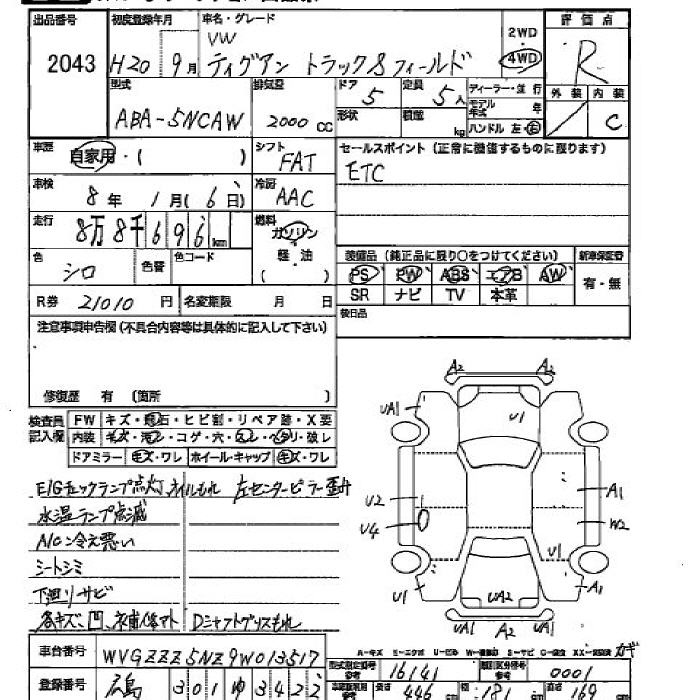 出品番号 初度登録年月 車名・グレード 評価点
2043 H20 9月 VW 2WD R
ティグアン トラック&フィールド 4WD
型式 排気量 ドア 定員 ディーラー・並行 外装 内装
ABA-5NCAW 2000cc 5 5人 モデル年式 年 C
形状 積載 kg ハンドル 左・右
車歴 自家用・( ) シフト FAT セールスポイント (正常に機能するものに限ります)
ETC
車検 8年 1月(6日) 冷房 AAC
走行 8万8千696km 燃料 ガソリン
軽油
( )
色 シロ 色替 色コード 装備品 (純正品に限り○をつけてください) 新車保証書
PS PW ABS エアB AW 有・無
R券 21010円 名変期限 月 日 SR ナビ TV 本革
注意事項申告欄 (不具合内容等は具体的に記入して下さい) 後日品
修復歴 有 (箇所 )
検査員記入欄 FW キズ・飛石・ヒビ割・リペア跡・X要
内装 キズ・汚レ・コゲ・穴・スレ・ヘタリ・破レ
ドアミラー キズ・ワレ ホイール・キャップ キズ・ワレ
A2 A2
UA1 U1
U2 A1
U4 W2
U1 U1 A1
UA2
UA1 A2 UA1
E/Gチェックランプ点灯、オイルもれ 左センターピラー歪み
水温ランプ点滅
A/Cン冷え悪い
シートシミ
下廻りサビ
各キズ、凹、補修跡 Dシャフトグリスもれ
車台番号 WVGZZZ5NZ9W013517 型式指定番号 16141 類別区分番号 0001
登録番号 広島 301 ゆ 3422 長さ 446cm 幅 181 高さ 169